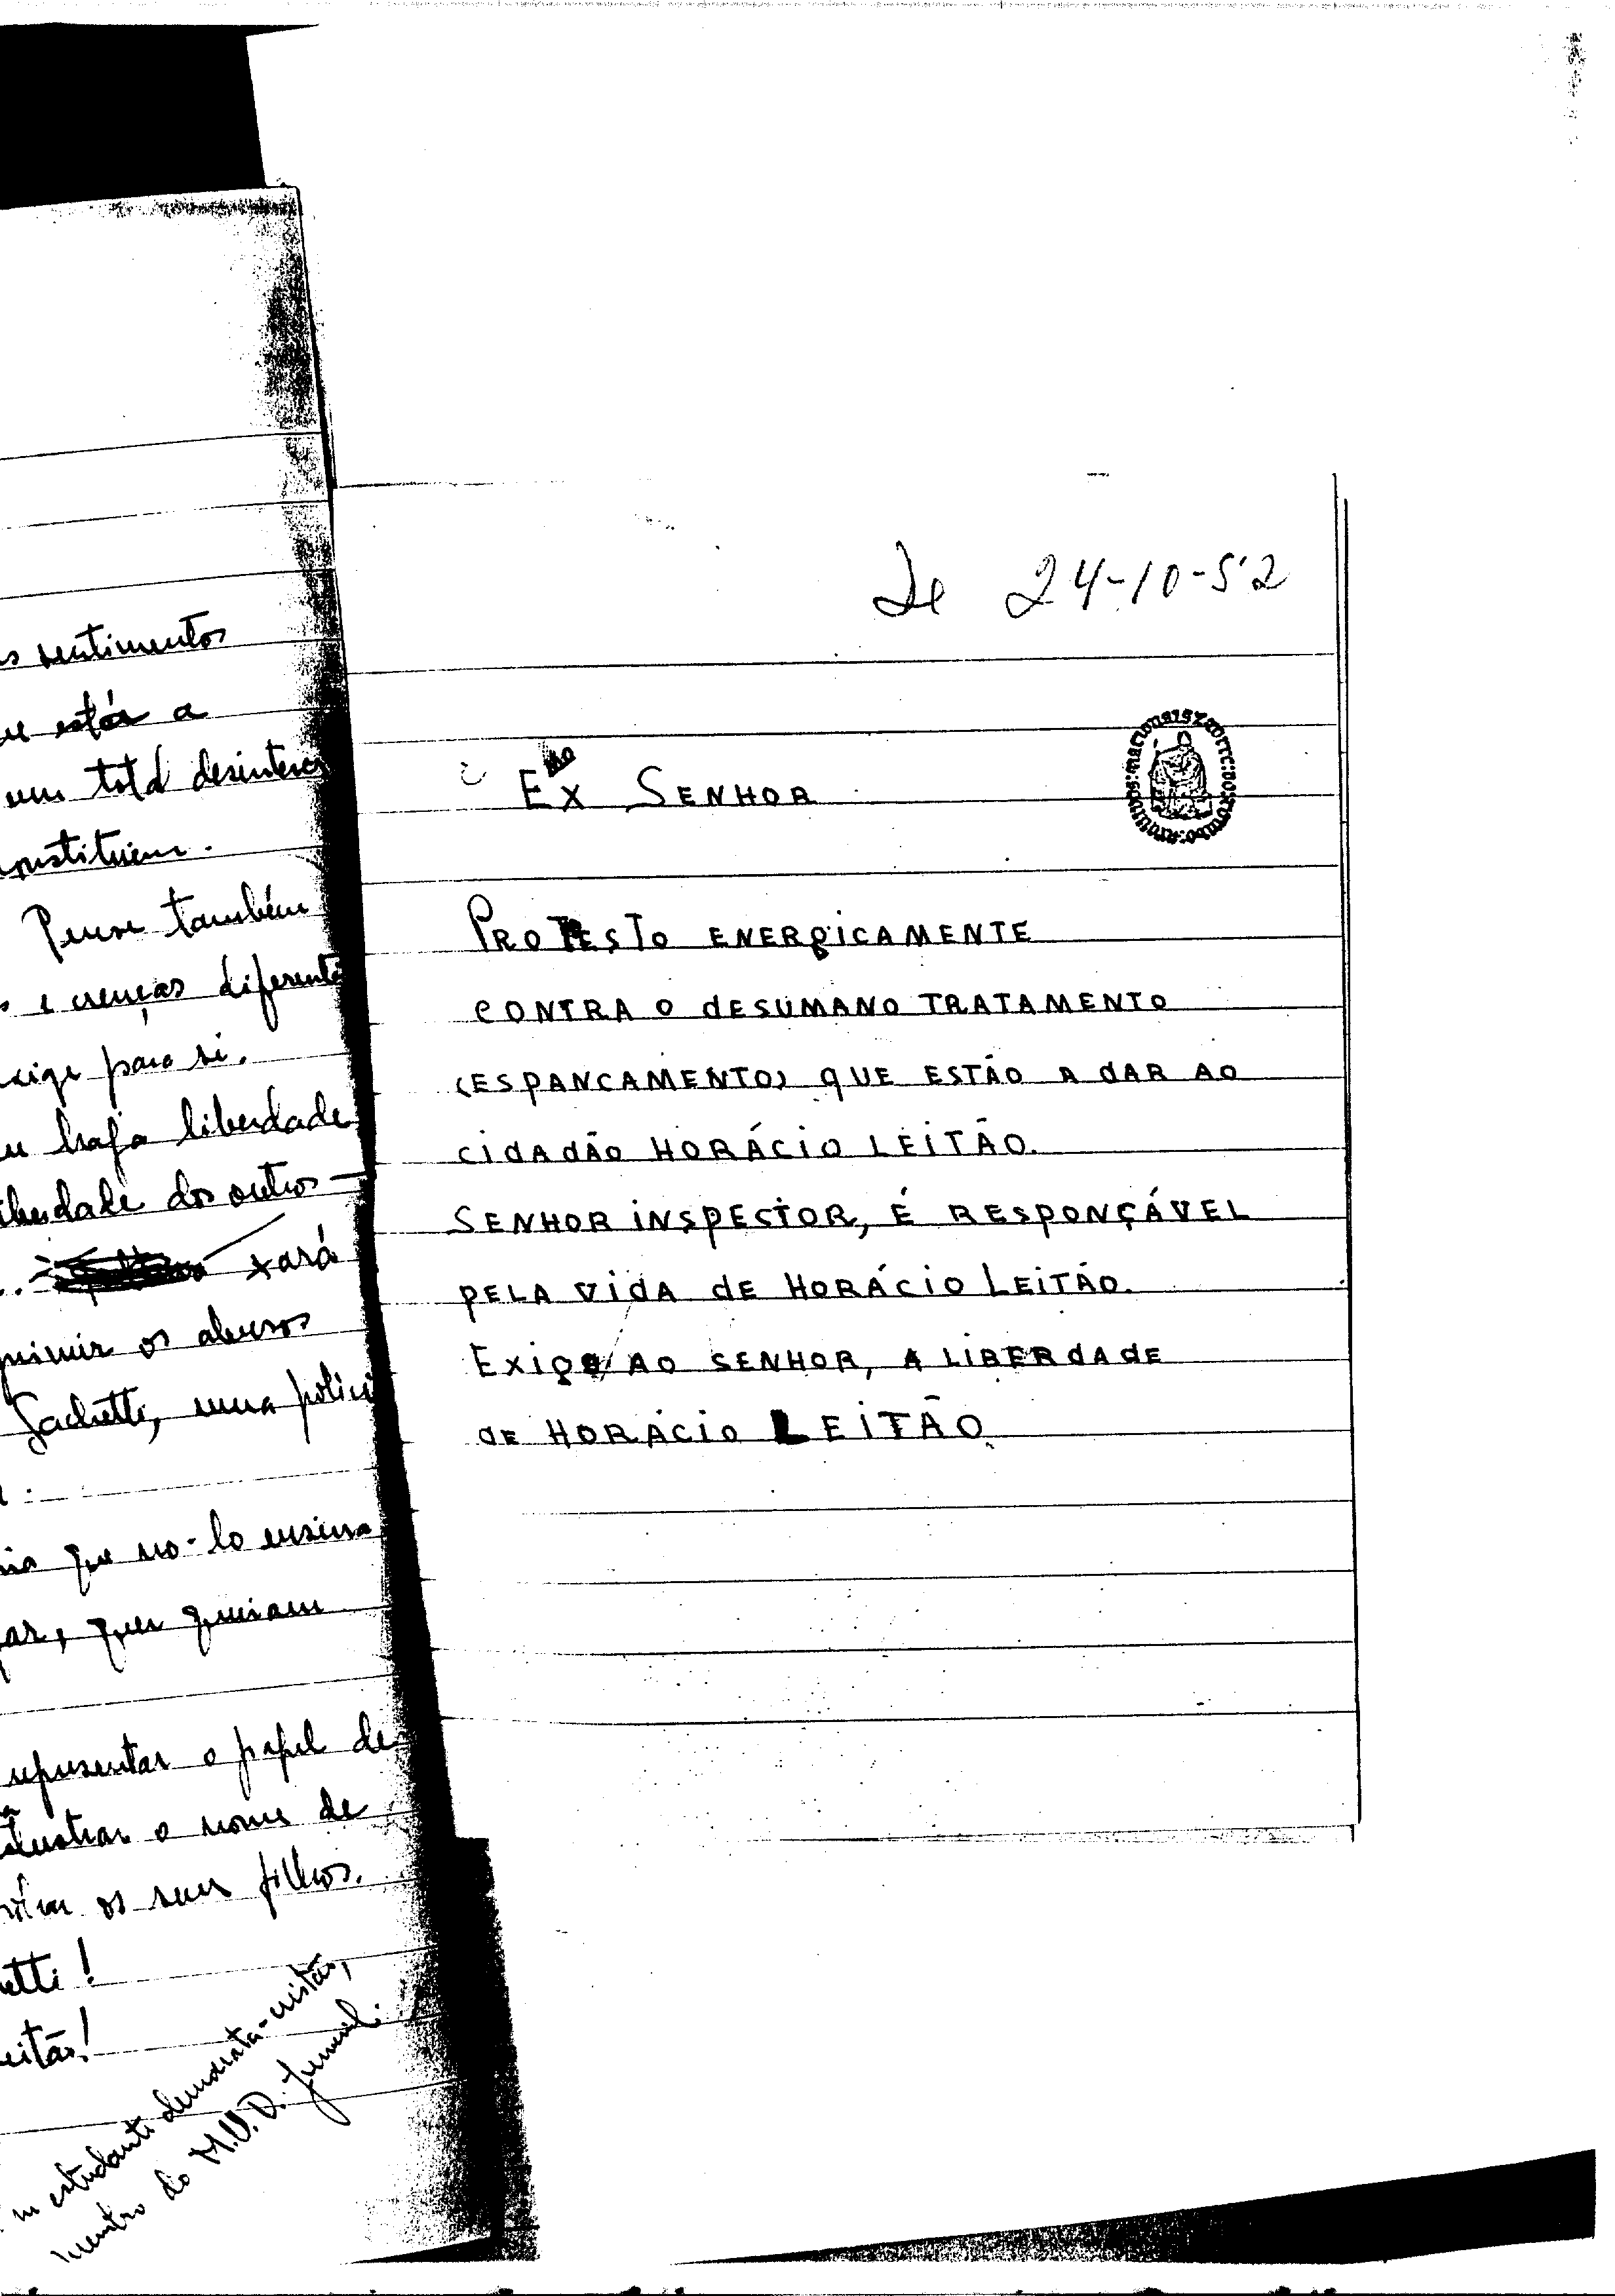 s sentimentos
ue estás a
um total desinteres
onstituiem.
Pense também
s e crenças diferente
xige para si.
eu haja liberdade
iberdade dos outros —
.. xará
primir os abusos
Sachetti, uma polici
que no-lo ensina
ar, quer queiram
representar o papel de
o nome de
os seus filhos.
etti!
eitão!
m estudante democrata-cristão,
membro do M.U.D. Juvenil.
De 24-10-52
Exmo SENHOR
PROTESTO ENERGICAMENTE
CONTRA O DESUMANO TRATAMENTO
(ESPANCAMENTO) QUE ESTÃO A DAR AO
CIDADÃO HORÁCIO LEITÃO.
SENHOR INSPECTOR, É RESPONÇÁVEL
PELA VIDA DE HORÁCIO LEITÃO.
EXIGE AO SENHOR, A LIBERDADE
DE HORÁCIO LEITÃO.